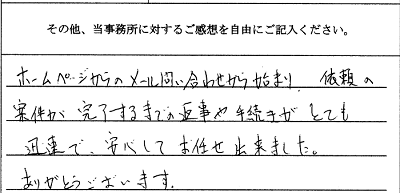 その他、当事務所に対するご感想を自由にご記入ください。
ホームページからのメール問い合わせから始まり、依頼の
案件が完了するまでの返事や手続きがとても
迅速で、安心してお任せ出来ました。
ありがとうございます。